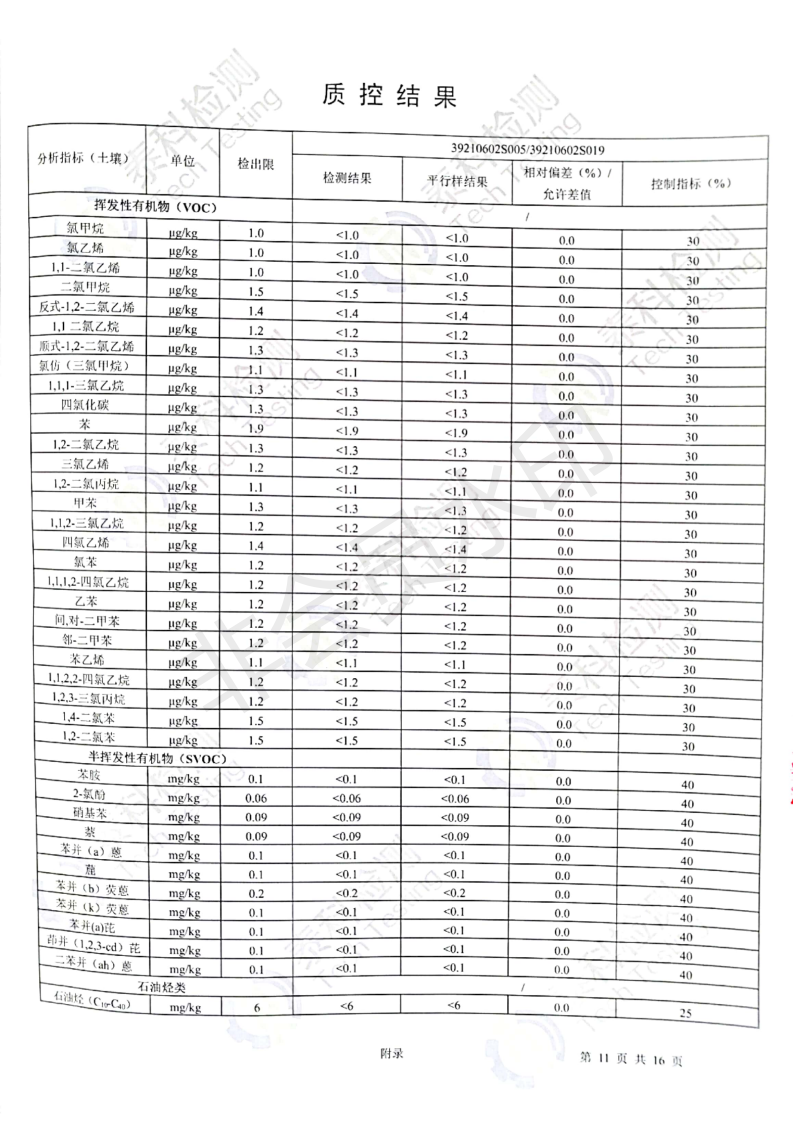 质 控 结 果
39210602S005/39210602S019
分析指标（土壤） 单位 检出限 检测结果 平行样结果 相对偏差（%）/允许差值 控制指标（%）
挥发性有机物（VOC） /
氯甲烷 μg/kg 1.0 <1.0 <1.0 0.0 30
氯乙烯 μg/kg 1.0 <1.0 <1.0 0.0 30
1,1-二氯乙烯 μg/kg 1.0 <1.0 <1.0 0.0 30
二氯甲烷 μg/kg 1.5 <1.5 <1.5 0.0 30
反式-1,2-二氯乙烯 μg/kg 1.4 <1.4 <1.4 0.0 30
1,1 二氯乙烷 μg/kg 1.2 <1.2 <1.2 0.0 30
顺式-1,2-二氯乙烯 μg/kg 1.3 <1.3 <1.3 0.0 30
氯仿（三氯甲烷） μg/kg 1.1 <1.1 <1.1 0.0 30
1,1,1-三氯乙烷 μg/kg 1.3 <1.3 <1.3 0.0 30
四氯化碳 μg/kg 1.3 <1.3 <1.3 0.0 30
苯 μg/kg 1.9 <1.9 <1.9 0.0 30
1,2-二氯乙烷 μg/kg 1.3 <1.3 <1.3 0.0 30
三氯乙烯 μg/kg 1.2 <1.2 <1.2 0.0 30
1,2-二氯丙烷 μg/kg 1.1 <1.1 <1.1 0.0 30
甲苯 μg/kg 1.3 <1.3 <1.3 0.0 30
1,1,2-三氯乙烷 μg/kg 1.2 <1.2 <1.2 0.0 30
四氯乙烯 μg/kg 1.4 <1.4 <1.4 0.0 30
氯苯 μg/kg 1.2 <1.2 <1.2 0.0 30
1,1,1,2-四氯乙烷 μg/kg 1.2 <1.2 <1.2 0.0 30
乙苯 μg/kg 1.2 <1.2 <1.2 0.0 30
间,对-二甲苯 μg/kg 1.2 <1.2 <1.2 0.0 30
邻-二甲苯 μg/kg 1.2 <1.2 <1.2 0.0 30
苯乙烯 μg/kg 1.1 <1.1 <1.1 0.0 30
1,1,2,2-四氯乙烷 μg/kg 1.2 <1.2 <1.2 0.0 30
1,2,3-三氯丙烷 μg/kg 1.2 <1.2 <1.2 0.0 30
1,4-二氯苯 μg/kg 1.5 <1.5 <1.5 0.0 30
1,2-二氯苯 μg/kg 1.5 <1.5 <1.5 0.0 30
半挥发性有机物（SVOC）
苯胺 mg/kg 0.1 <0.1 <0.1 0.0 40
2-氯酚 mg/kg 0.06 <0.06 <0.06 0.0 40
硝基苯 mg/kg 0.09 <0.09 <0.09 0.0 40
萘 mg/kg 0.09 <0.09 <0.09 0.0 40
苯并（a）蒽 mg/kg 0.1 <0.1 <0.1 0.0 40
䓛 mg/kg 0.1 <0.1 <0.1 0.0 40
苯并（b）荧蒽 mg/kg 0.2 <0.2 <0.2 0.0 40
苯并（k）荧蒽 mg/kg 0.1 <0.1 <0.1 0.0 40
苯并(a)芘 mg/kg 0.1 <0.1 <0.1 0.0 40
茚并（1,2,3-cd）芘 mg/kg 0.1 <0.1 <0.1 0.0 40
二苯并（ah）蒽 mg/kg 0.1 <0.1 <0.1 0.0 40
石油烃类 /
石油烃（C10-C40） mg/kg 6 <6 <6 0.0 25
附录
第 11 页 共 16 页
泰科检测
Tech Testing
非会员水印